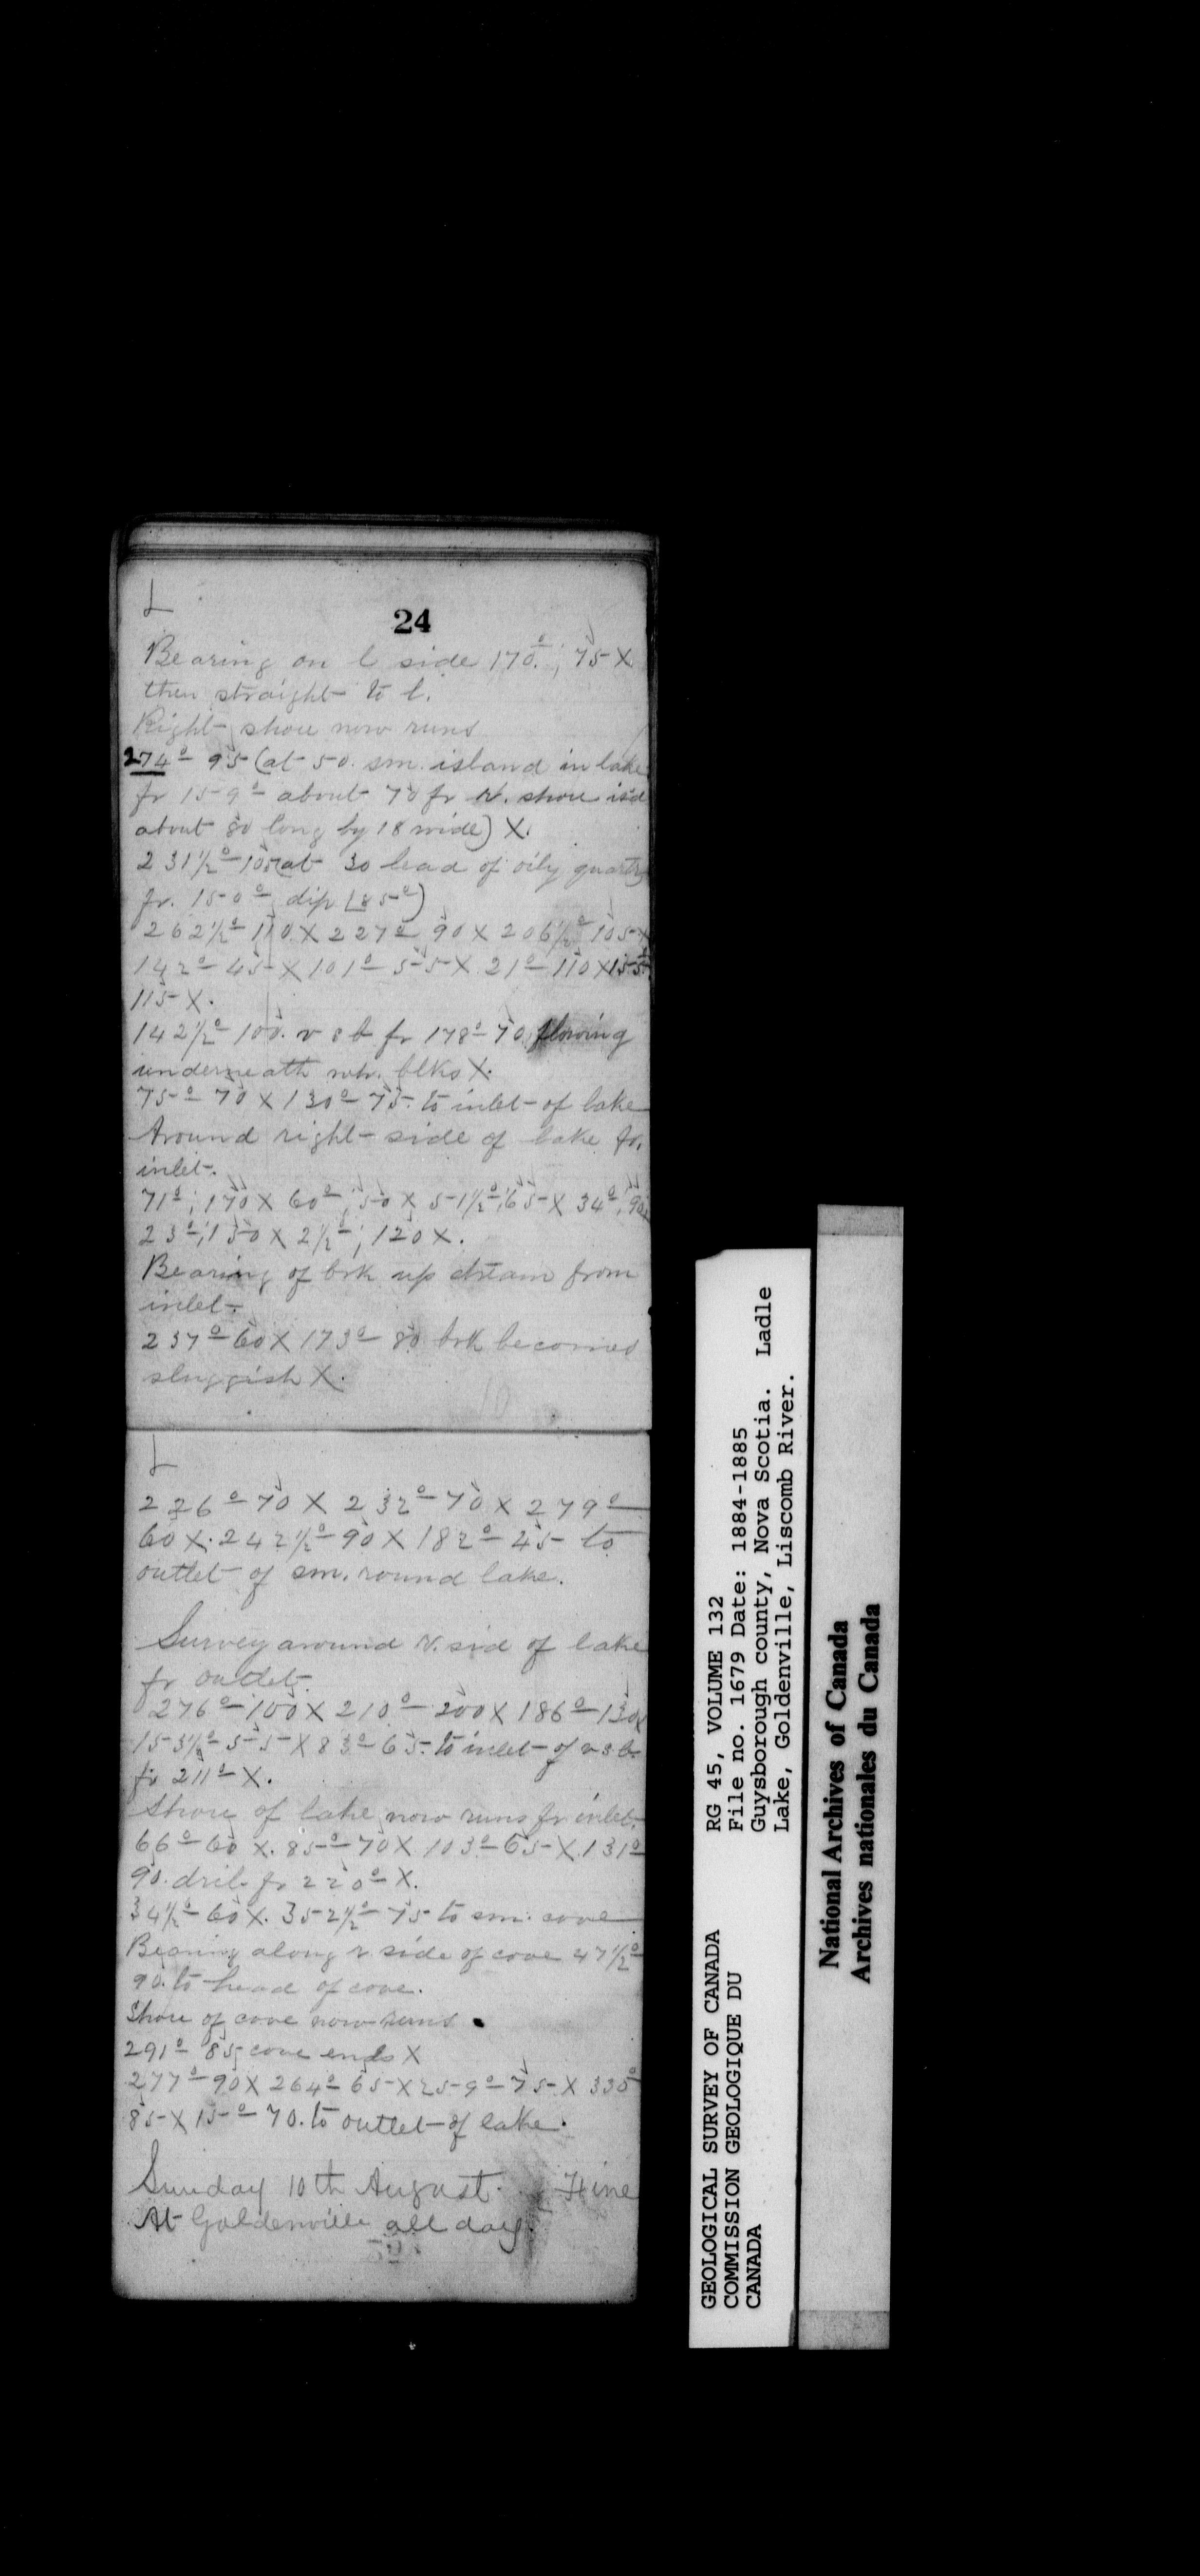 L
24
Bearing on l side 170°; 75 X
then straight to l.
Right shore now runs
274° 95 (at 50. sm. island in lake
fr 159° about 70 fr r. shore isd
about 80 long by 18 wide) X.
231½° 105 (at 30 lead of oily quartz
fr. 150° dip ∠85°)
262½° 110 X 227° 90 X 206½° 105 X
142° 45 X 101° 55 X 21° 110 X 155°
115 X.
142½° 100. v s b fr 178° 70 flowing
underneath wh. blks X.
75° 70 X 130° 75. to inlet of lake
Around right side of lake fr.
inlet.
71°; 170 X 60°; 50 X 51½°; 65 X 34°; 90X
23°; 130 X 2½°; 120 X.
Bearing of brk up stream from
inlet.
237° 60 X 173° 80. brk becomes
sluggish X.
L
226° 70 X 232° 70 X 279°
60 X. 242½° 90 X 182° 45 to
outlet of sm. round lake.
Survey around r. sid of lake
fr outlet.
276° 100 X 210° 200 X 186° 130X
153½° 55 X 83° 65. to inlet of v s b.
fr 211° X.
Shore of lake now runs fr inlet.
66° 60 X. 85° 70 X 103° 65 X 131°
90. dril. fr 220° X.
34½° 60 X. 352½° 75 to sm. cove
Bearing along r side of cove 47½°
90. to head of cove.
Shore of cove now runs.
291° 85 cove ends X
277° 90 X 264° 65 X 259° 75 X 330°
85 X 15° 70. to outlet of lake.
Sunday 10th August. Fine
At Goldenville all day.
GEOLOGICAL SURVEY OF CANADA
COMMISSION GEOLOGIQUE DU
CANADA
RG 45, VOLUME 132
File no. 1679 Date: 1884-1885
Guysborough county, Nova Scotia. Ladle
Lake, Goldenville, Liscomb River.
National Archives of Canada
Archives nationales du Canada